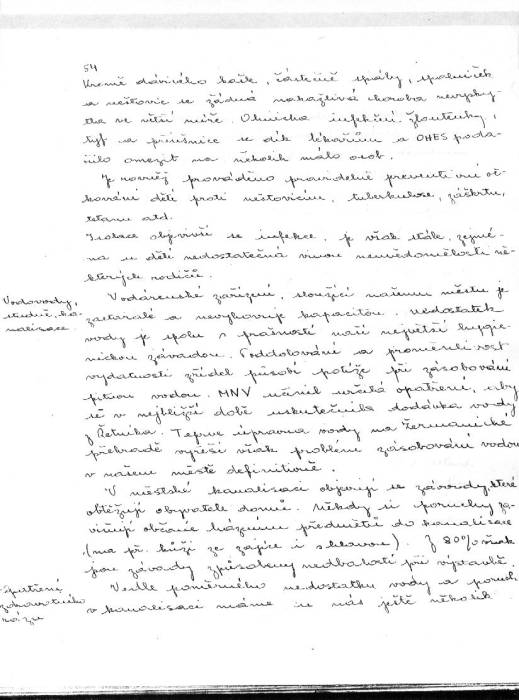 54
Kromě dávivého kašle, částečně spály, spalniček
a neštovic se žádná nakažlivá choroba nevysky-
tla ve větší míře. Ohniska infekční žloutenky,
tyf a příušnice se dík lékařům a OHES poda-
řilo omezit na několik málo osob.
Je rovněž prováděno pravidelné preventivní oč-
kování dětí proti neštovicím, tuberkulose, záškrtu,
tetanu atd.
Isolace objevivší se infekce je však stále, zejmé-
na u dětí nedostatečná vinou neuvědomělosti ně-
kterých rodičů.
Vodovody,
studně, ka-
nalisace
Vodárenské zařízení, sloužící našemu městu je
zastaralé a nevyhovuje kapacitou. Nedostatek
vody je spolu s prašností naší největší hygie-
nickou závadou. Poddolování a proměnlivost
vydatnosti zřídel působí potíže při zásobování
pitnou vodou. MNV učinil určitá opatření, aby
se v nejbližší době uskutečnila dodávka vody
z Řetníka. Teprve úpravna vody na Žermanické
přehradě vyřeší však problém zásobování vodou
v našem městě definitivně.
V městské kanalisaci objevují se závady, které
obtěžují obyvatele domů. Někdy si poruchy za-
viňují občané házením předmětů do kanalisace
(na př. kůží ze zajíce i s hlavou). Z 80% však
jsou závady způsobeny nedbalostí při výstavbě.
zdravotního
rázu
Vedle poměrného nedostatku vody a poruch
v kanalisaci máme u nás ještě několik